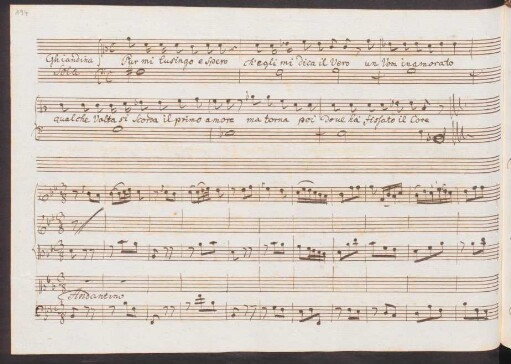 Ghiandina Pur mi lusingo e Spero ch'egli mi dica il Vero un Vom inamorato
Sola
qualche Volta si scorda il primo amore ma torna poi Dove ha fissato il Core
Andantino